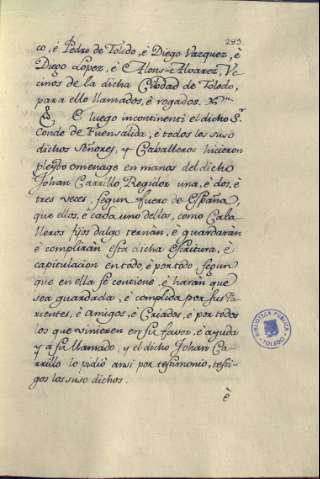 283
co, è Pedro de Toledo, è Diego Vazquez, è
Diego Lopez, è Alons-Alvarez, Ve-
cinos de la dicha Ciudad de Toledo,
para ello llamados, è rogados.
E luego incontinenti el dicho Sr.
Conde de Fuensalida, è todos los suso
dichos Señores, y Caballeros hicieron
pleyto omenage en manos del dicho
Johan Carrillo, Regidor una, è dos, è
tres veces, segun fuero de España,
que ellos, è cada uno dellos, como Caba-
lleros fijos dalgo ternàn, è guardaràn
è compliràn esta dicha escritura, è
capitulacion en todo, è por todo segun
que en ella se contiene, è haràn que
sea guardada, è complida por sus Pa-
rientes, è amigos, è Criados, è por todos
los que vinieren en su favor, è ayuda
y a su llamado, y el dicho Johan Ca-
rrillo lo pidiò ansi por testimonio, testi-
gos los suso dichos.
è
BIBLIOTECA PUBLICA
TOLEDO